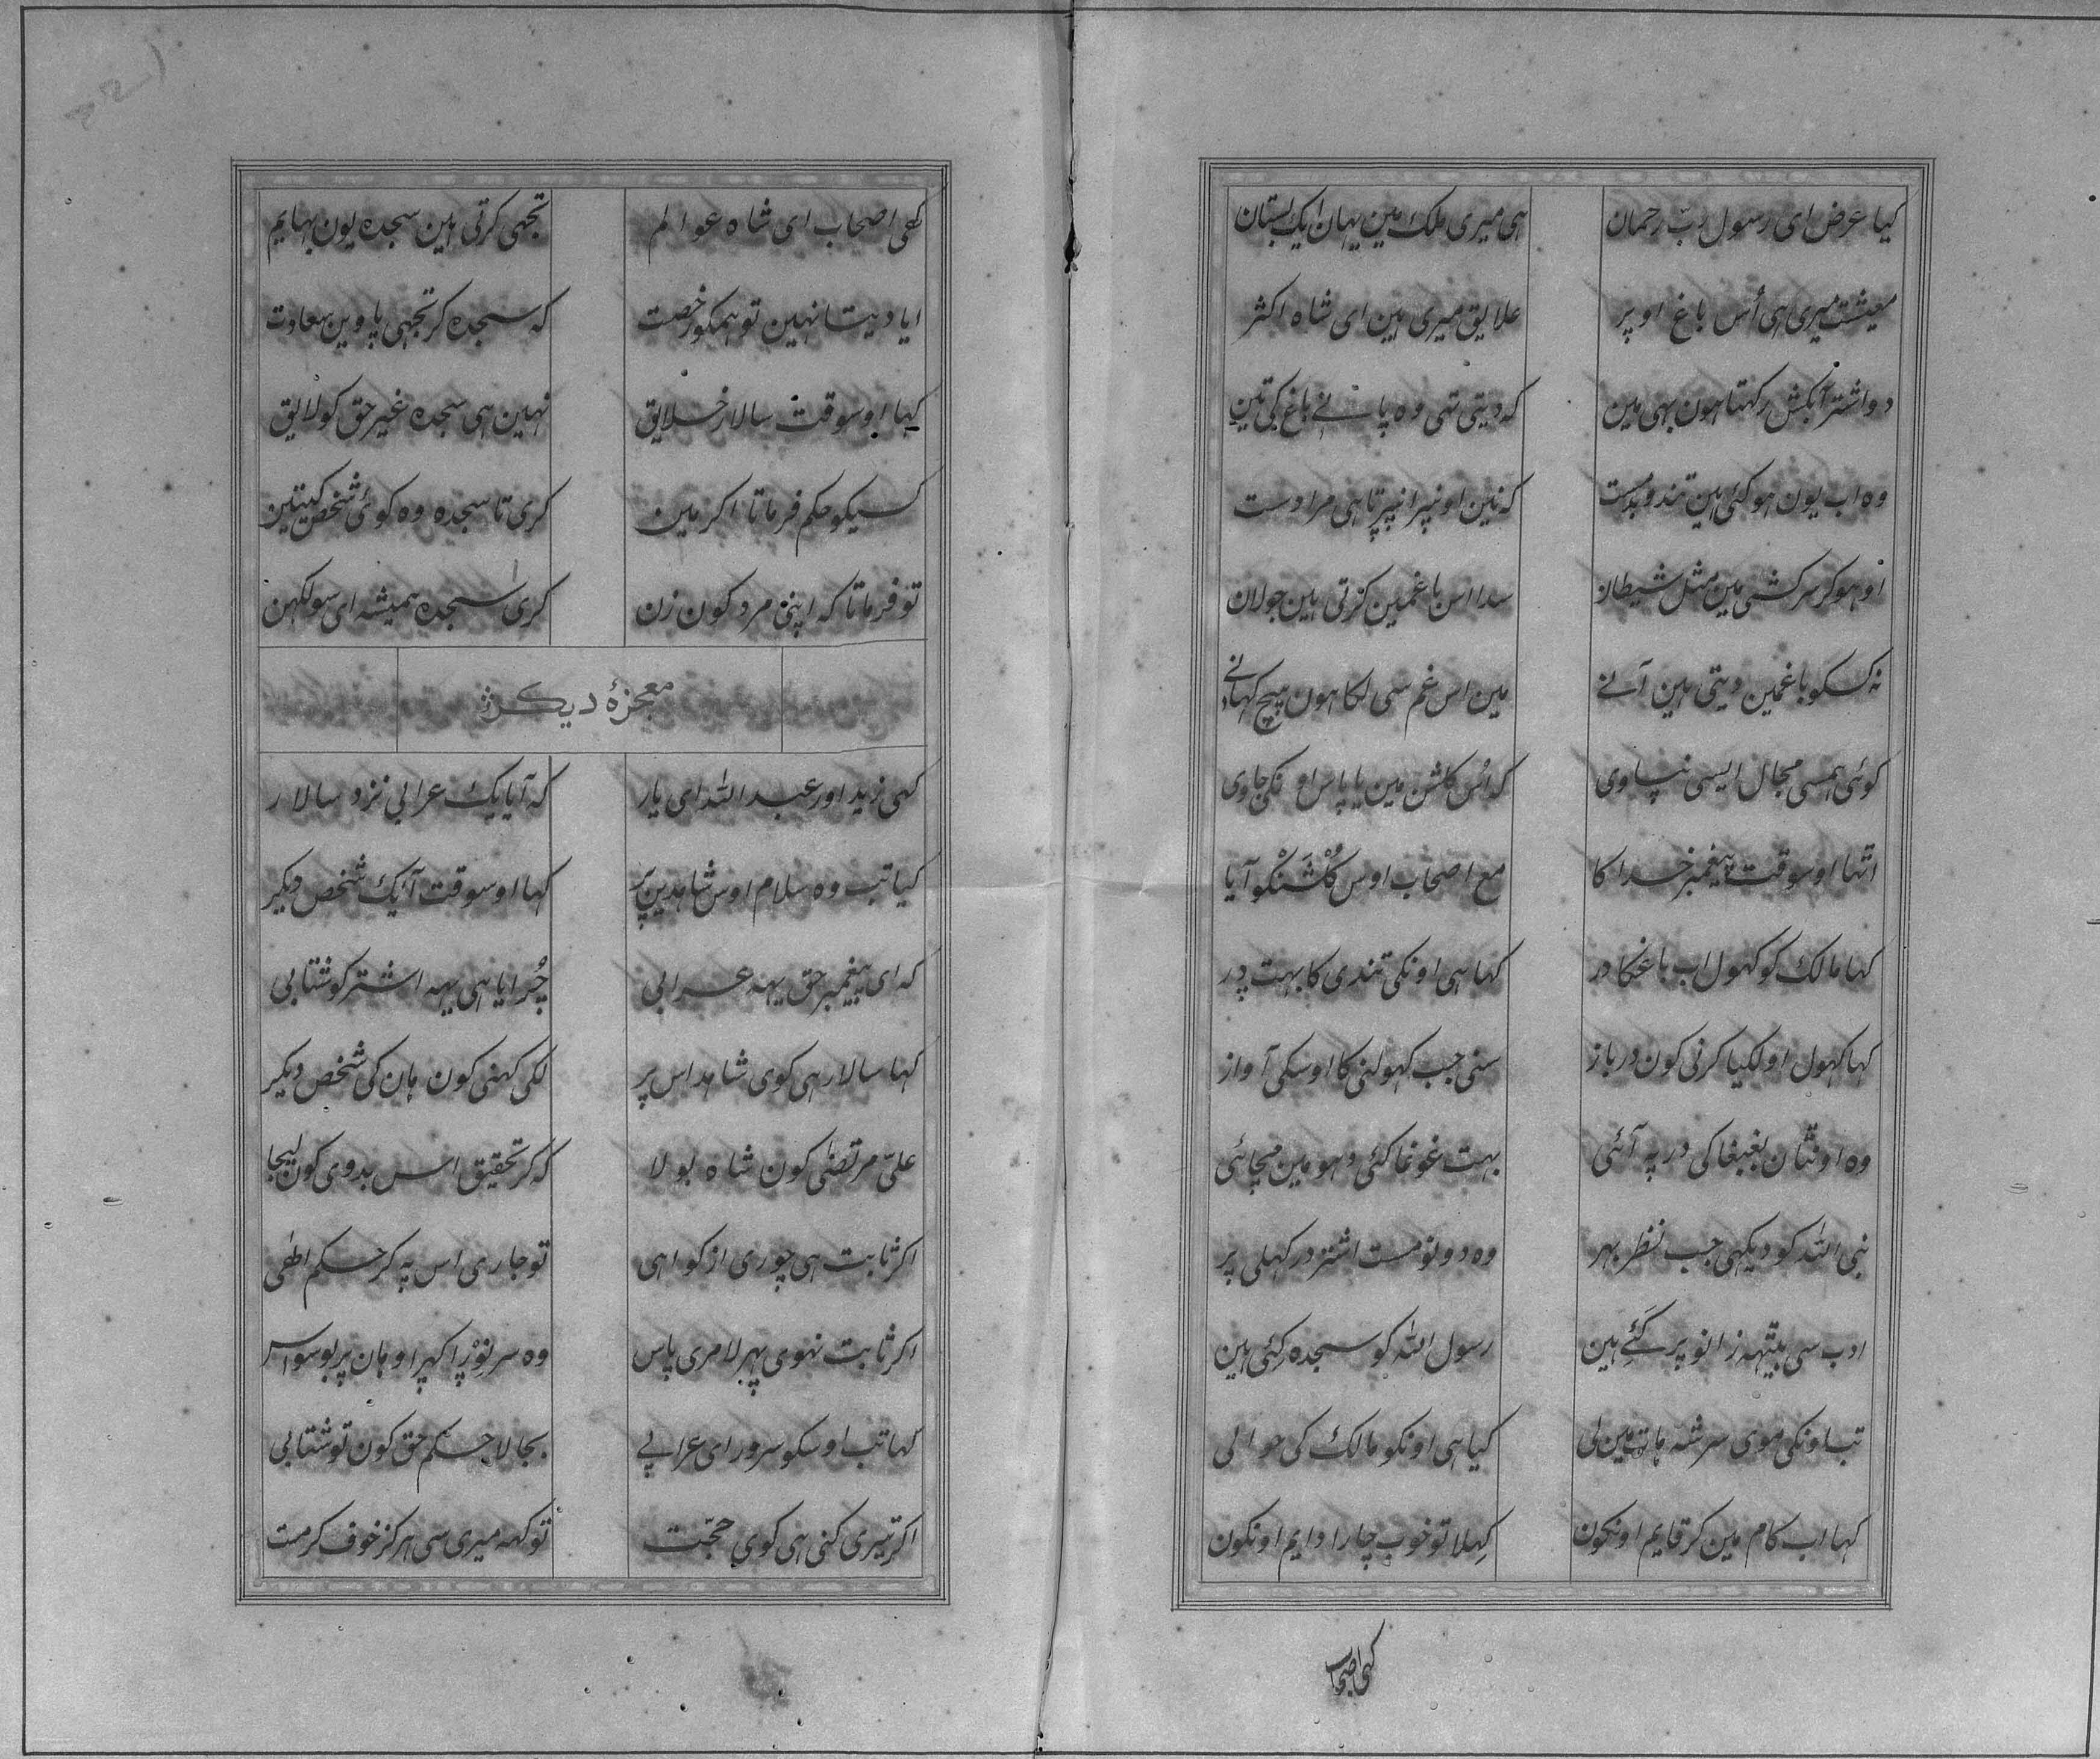 کیا عرض ای رسول ربّ رحمان ہی میری ملک مین یہان ایک بستان
معیشت میری ہی اُس باغ اوپر علایق میری ہین ای شاہ اکثر
دو اشتر آبکش رکہتا ہون بہی مین کہ دیتی تہی وہ پانے باغ کی تین
وہ اب یون ہو کئی ہین تند و بدمست کہ نین اونپر انپیرتا ہی مرا دست
او ہو کر سرکشی مین مثل شیطان سدا اس باغمین کرتی ہین جولان
نہ کسکو باغمین دیتی ہین آنے مین اس غم سی لکا ہون پیچ کہانے
کوئی ہمسی مجال ایسی نپاوی کہ اُس کلشن مین یا پاس اونکی جاوی
اتہا اوسوقت پیغمبر خدا کا مع اصحاب اوس کُلْشَنْکو آیا
کہا مالک کو کہول اب باغکا در کہا ہی اونکی تندی کا بہت ڈر
کہا کہول او لکیا کرنی کون در باز سنی جب کہولنی کا اوسکی آواز
وہ اوتٹان بغبغا کی در پہ آئی بہت غوغا کئی دہومین مچائی
نبی اللہ کو دیکہی جب نظر بہر وہ دونو مست اشتر در کہلی پر
ادب سی بیٹہہ زانو پر کَئے ہین رسول اللہ کو سجدہ کئی ہین
تب اونکی موی سر شہ ہات مین لی کیا ہی اونکو مالک کی حوالی
کہا اب کام مین کر قایم اونکون کہلا تو خوب چارا دایم اونکون
کہی اصحاب
کہی اصحاب ای شاہ عوالم تجہی کرتی ہین سجدہ یون بہایم
ایا دیتا نہین تو ہمکو رخصت کہ سجدہ کر تجہی پاوین سعادت
کہا اوسوقت سالار خلایق نہین ہی سجدہ غیر حق کو لایق
کسیکو حکم فرماتا اکر مین کری تا سجدہ وہ کوئی شخص کیتین
تو فرماتا کہ اپنی مرد کون زن کری سجدہ ہمیشہ ای سولکہن
معجزهٔ دیکر
کہی زید اور عبد اللہ ای یار کہ آیا یک عرابی نزد سالار
کیا تب وہ سلام اوس شاہدین پر کہا اوسوقت آ یک شخص دیکر
کہ ای پیغمبر حق یہہ عرابی چُرایا ہی یہہ اشتر کو شتابی
کہا سالار ہی کوی شاہد اس پر لکی کہنی کون ہان کی شخص دیکر
علیّ مرتضیٰ کون شاہ بولا کہ کر تحقیق اس بدوی کون لیجا
اکر ثابت ہی چوری از کواہی تو جاری اس پہ کر حکم الٰہی
اکر ثابت نہوی پہر لا مری پاس وہ سر نوڑا کہڑا وہان پر بوسواس
کہا تب اوسکو سرور ای عرابی بجا لا حکم حق کون تو شتابی
اکر تیری کنی ہی کوی حجّت تو کہہ میری سی ہرکز خوف کر مت